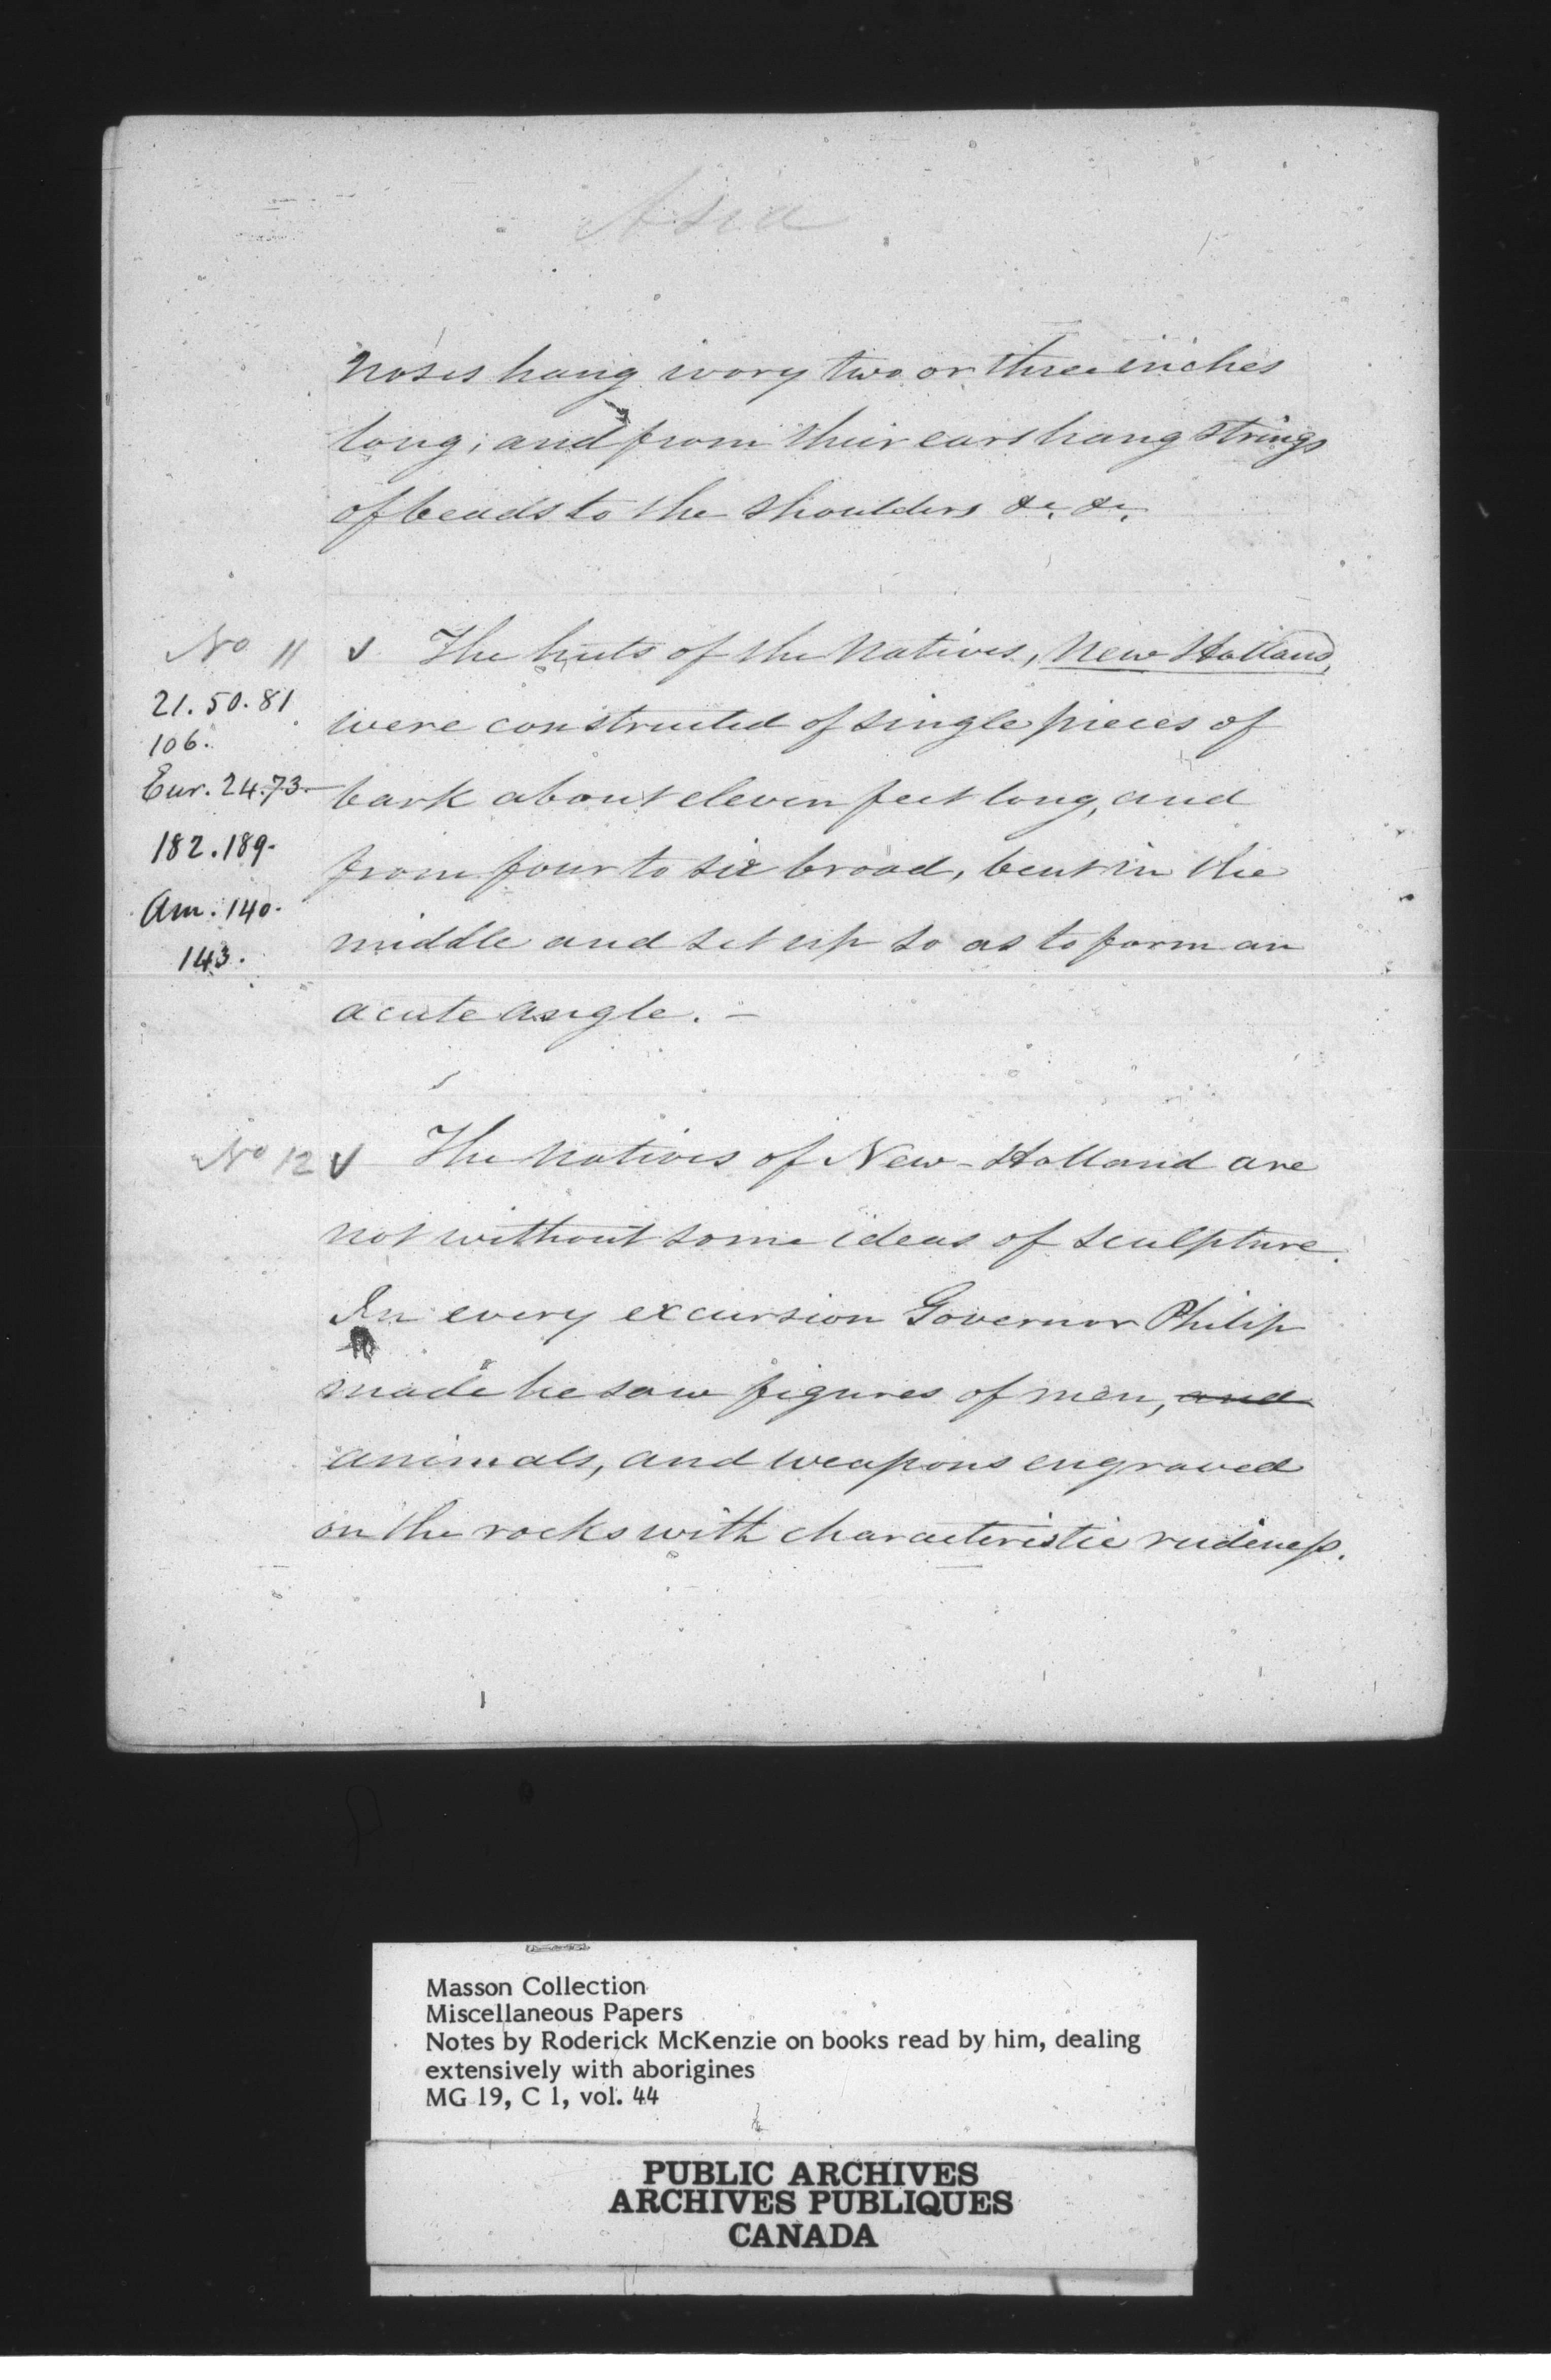 Asia
noses hang ivory two or three inches
long; and from their ears hang strings
of beads to the shoulders &c. &c.
No 11 √ The huts of the Natives, New Holland,
21. 50. 81
were constructed of single pieces of
106.
Eur. 24.73.
bark about eleven feet long, and
182.189.
from four to six broad, bent in the
Am. 140.
middle and set up so as to form an
143.
acute angle. –
No 12 √ The natives of New-Holland are
not without some ideas of sculpture.
In every excursion Governor Philip
made he saw figures of men, and
animals, and weapons engraved
on the rocks with characteristic rudeness.
Masson Collection
Miscellaneous Papers
Notes by Roderick McKenzie on books read by him, dealing
extensively with aborigines
MG 19, C 1, vol. 44
PUBLIC ARCHIVES
ARCHIVES PUBLIQUES
CANADA